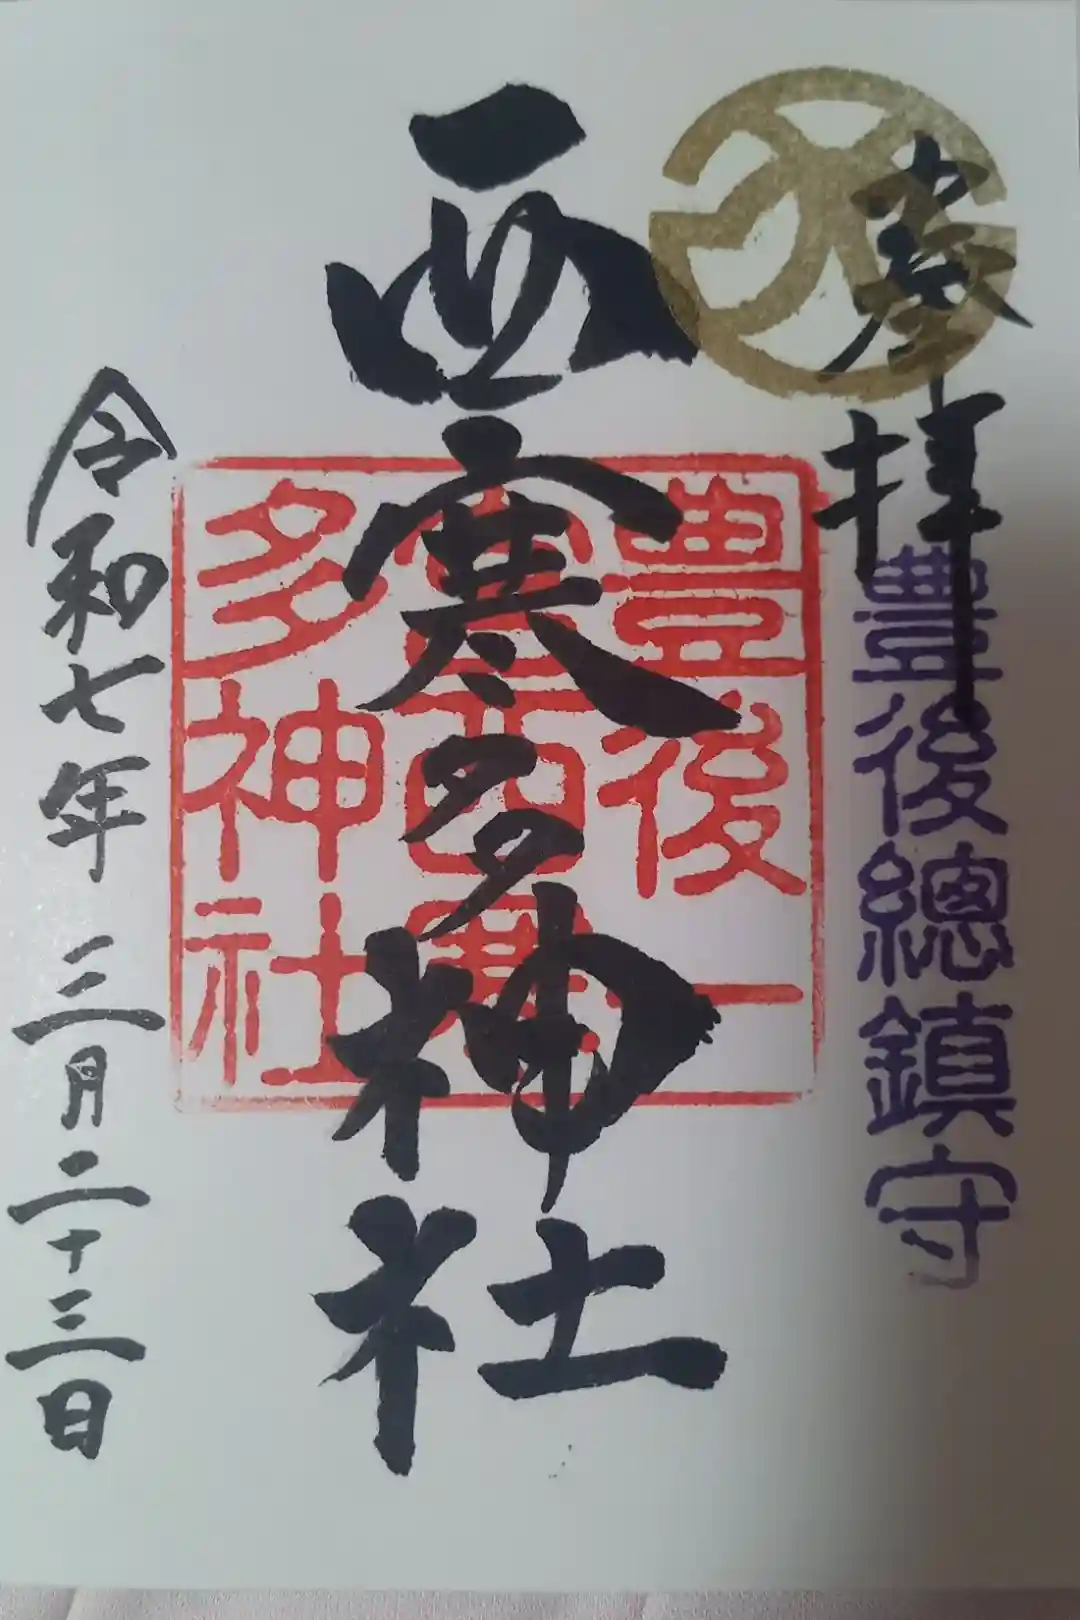 奉拝
豊後總鎮守
西寒多神社
豊後一
宮西寒
多神社
令和七年三月二十三日